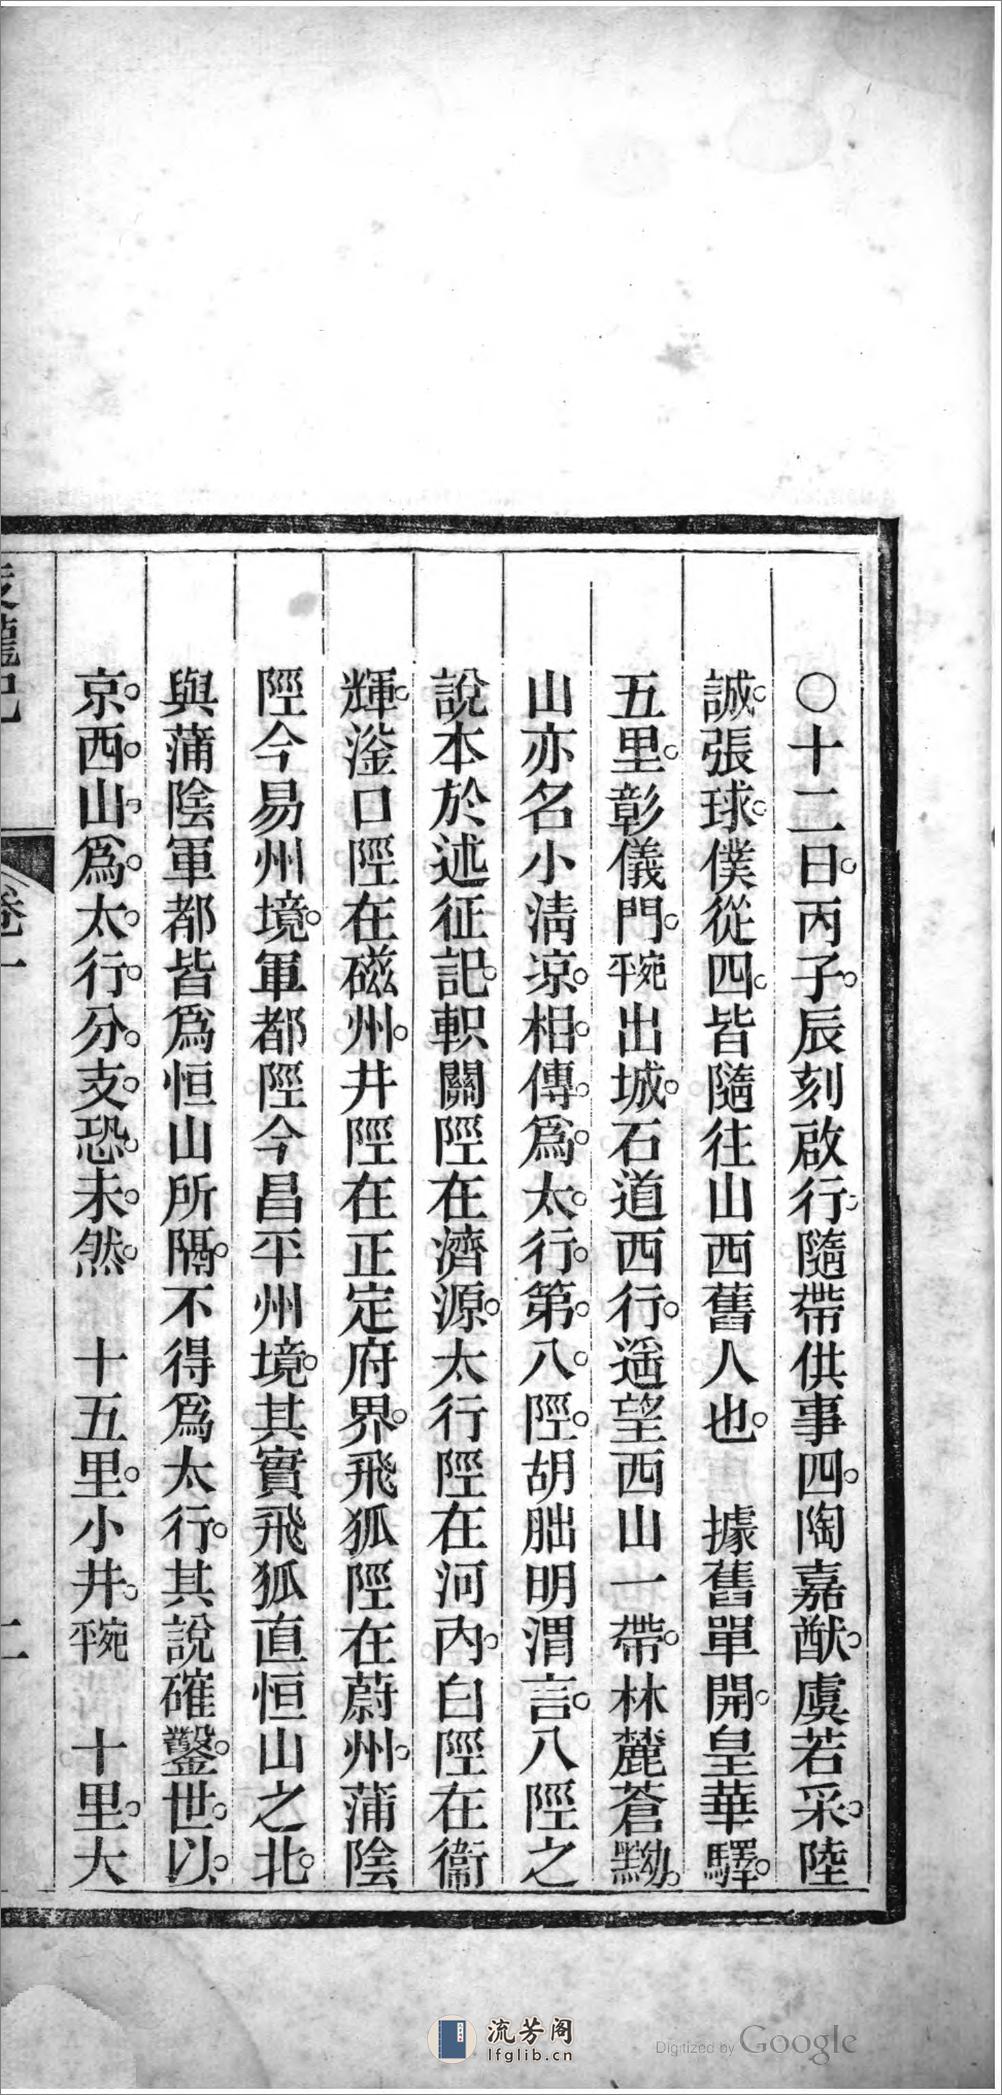 〇十二日丙子辰刻啟行隨帶供事四陶嘉猷虞若采陸
誠張球僕從四皆隨往山西舊人也　據舊單開皇華驛
五里彰儀門宛平出城石道西行遥望西山一帶林麓蒼黝
山亦名小清凉相傳爲太行第八陘胡朏明渭言八陘之
說本於述征記軹關陘在濟源太行陘在河內白陘在衞
輝滏口陘在磁州井陘在正定府界飛狐陘在蔚州蒲陰
陘今易州境軍都陘今昌平州境其實飛狐直恒山之北
與蒲陰軍都皆爲恒山所隔不得爲太行其說確鑿世以
京西山爲太行分支恐未然　十五里小井宛平　十里大
卷一
二
流芳阁
lfglib.cn
Digitized by Google